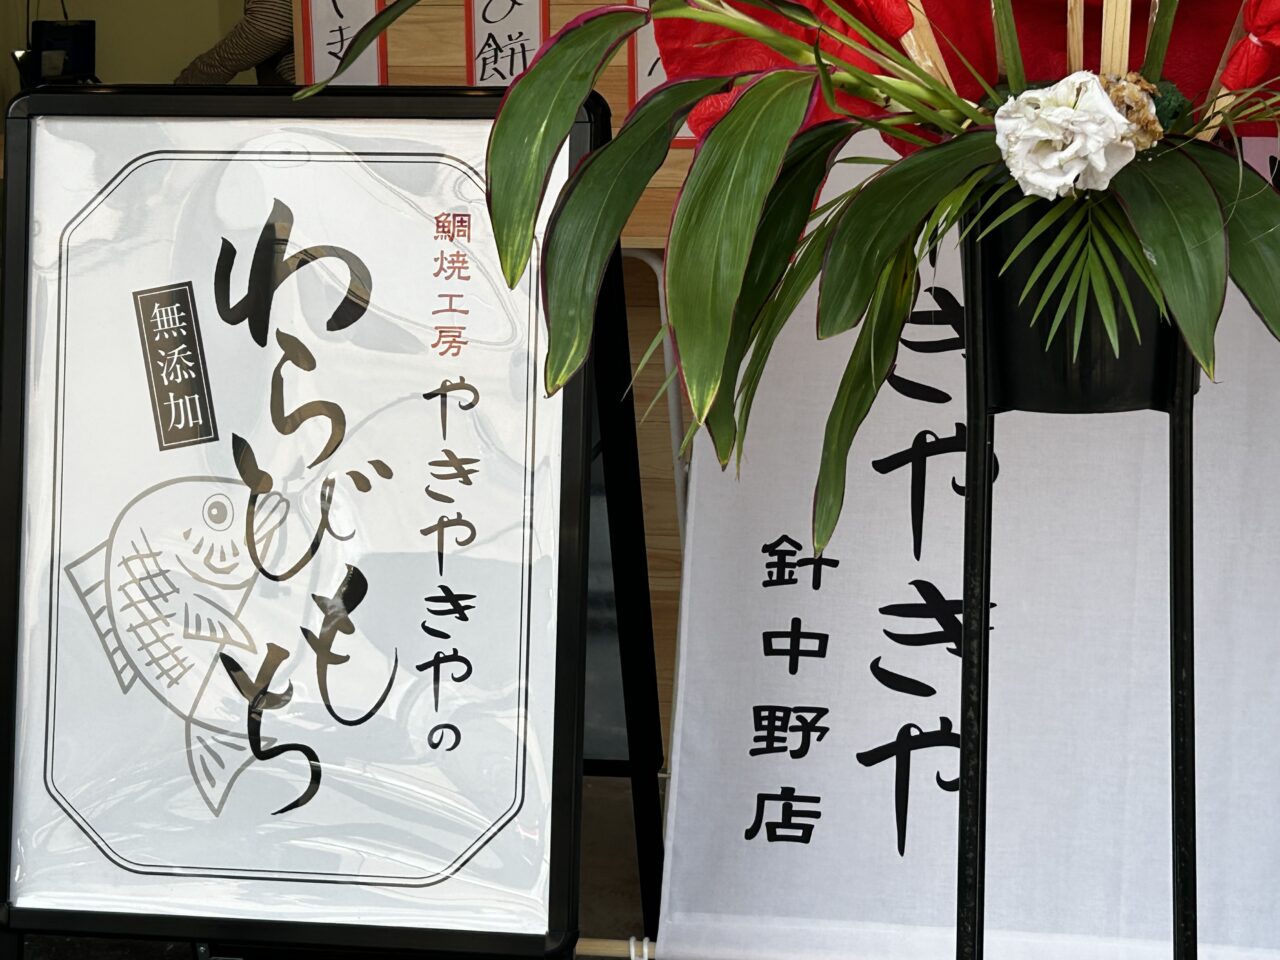 鯛焼工房 やきやきやの
わらびもち
無添加
餅
きやきや
針中野店